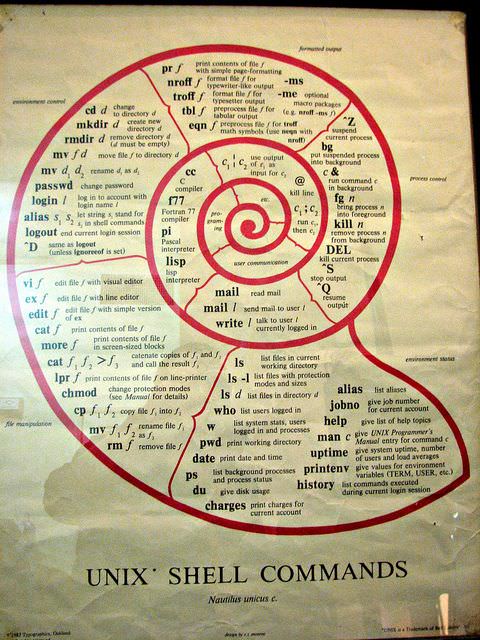 formatted output
pr f print contents of file f
with simple page-formatting
nroff f format file f for
typewriter-like output
troff f format file f for
typesetter output
tbl f preprocess file f for
tabular output
eqn f preprocess file f for troff
math symbols (use neqn with
nroff)
-ms
-me optional
macro packages
(e.g. nroff -ms f)
environment control
cd d change
to directory d
mkdir d create new
directory d
rmdir d remove directory d
(d must be empty)
mv f d move file f to directory d
mv d₁ d₂ rename d₁ as d₂
passwd change password
login l log in to account with
login name l
alias s₁ s₂ let string s₁ stand for
s₂ in shell commands
logout end current login session
^D same as logout
(unless ignoreeof is set)
process control
^Z
suspend
current process
bg
put suspended process
into background
c &
run command c
in background
fg n
bring process n
into foreground
kill n
remove process n
from background
DEL
kill current process
^S
stop output
^Q
resume
output
cc
C
compiler
f77
Fortran 77
compiler
pi
Pascal
interpreter
lisp
lisp
interpreter
programming
etc.
c₁ ¦ c₂ use output
of c₁ as
input for c₂
@
kill line
c₁ ; c₂
run c₁,
then c₂
user communication
mail read mail
mail l send mail to user l
write l talk to user l
currently logged in
file manipulation
vi f edit file f with visual editor
ex f edit file f with line editor
edit f edit file f with simple version
of ex
cat f print contents of file f
more f print contents of file f
in screen-sized blocks
cat f₁ f₂ >f₃ catenate copies of f₁ and f₂
and call the result f₃
lpr f print contents of file f on line-printer
chmod change protection modes
(see Manual for details)
cp f₁ f₂ copy file f₁ into f₂
mv f₁ f₂ rename file f₁
as f₂
rm f remove file f
environment status
ls list files in current
working directory
ls -l list files with protection
modes and sizes
ls d list files in directory d
who list users logged in
w list system stats, users
logged in and processes
pwd print working directory
date print date and time
ps list background processes
and process status
du give disk usage
charges print charges for
current account
alias list aliases
jobno give job number
for current account
help give list of help topics
man c give UNIX Programer's
Manual entry for command c
uptime give system uptime, number
of users and load averages
printenv give values for environment
variables (TERM, USER, etc.)
history list commands executed
during current login session
UNIX* SHELL COMMANDS
Nautilus unicus c.
Typographics, Oakland
design by
*UNIX is a Trademark of Bell